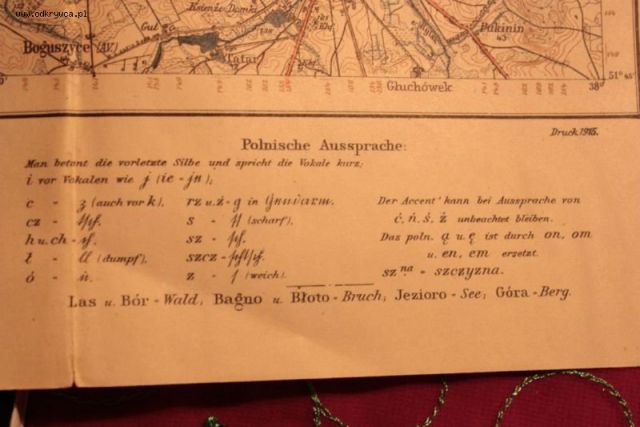 www.odkrywca.pl
Książe Domki
Gut
Boguszyce (M)
Tatar
Pukinin
43
Głuchówek
38°
51° 45'
Druck 1915.
Polnische Aussprache:
Man betont die vorletzte Silbe und spricht die Vokale kurz;
i vor Vokalen wie j (ie - je);
c - z (auch vor k),
cz - tsch.
h u. ch - ch.
ł - ll (dumpf),
ó - u.
rz u. ż - g in Gendarm.
s - ss (scharf),
sz - sch.
szcz - schtsch.
z - s (weich).
Der Accent kann bei Aussprache von
ć, ń, ś, ź unbeachtet bleiben.
Das poln. ą u. ę ist durch on, om
u. en, em ersetzt.
sz^na - szczyzna.
Las u. Bór - Wald; Bagno u. Błoto - Bruch; Jezioro - See; Góra - Berg.